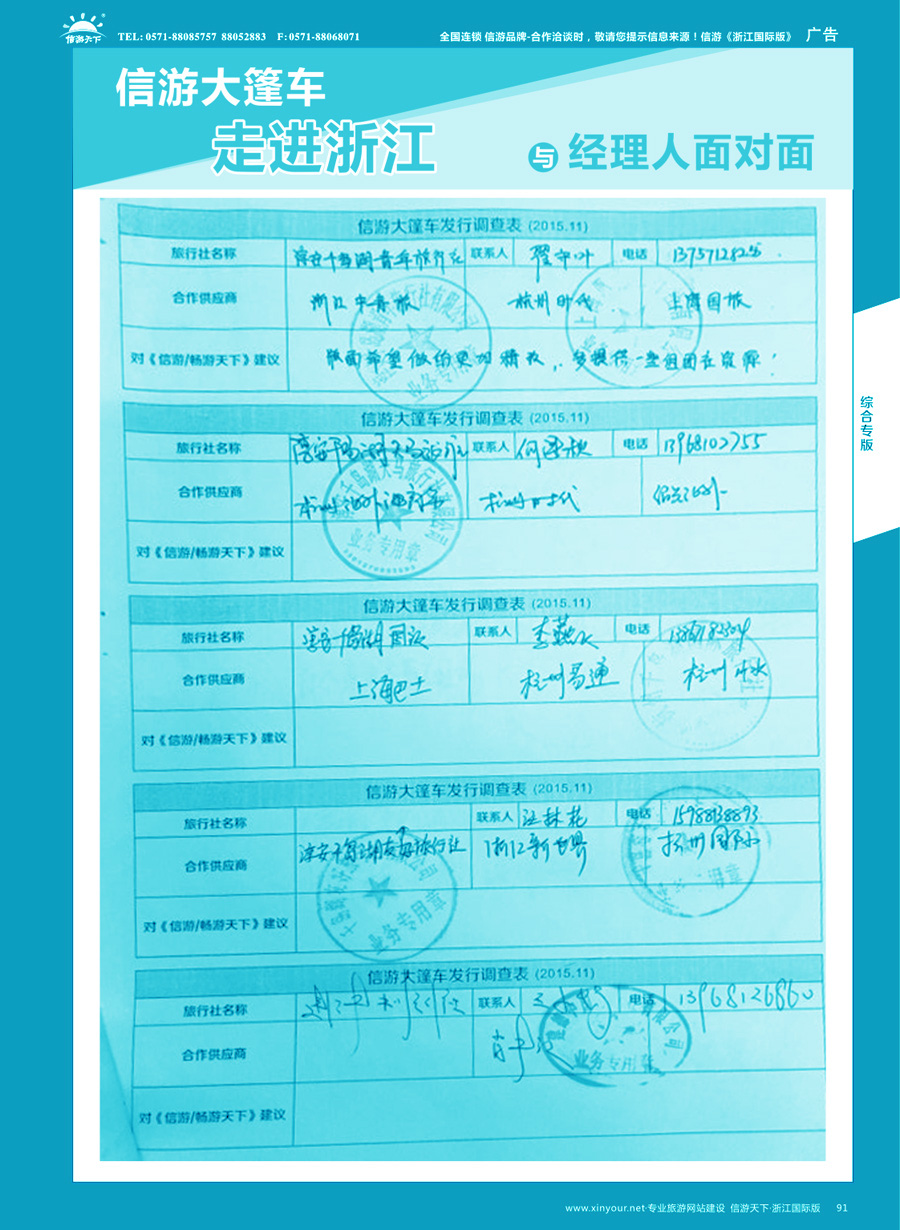 信游天下
TEL: 0571-88085757 88052883 F: 0571-88068071
全国连锁 信游品牌-合作洽谈时，敬请您提示信息来源！信游《浙江国际版》 广告
信游大篷车
走进浙江
与 经理人面对面
综合专版
信游大篷车发行调查表 (2015.11)
旅行社名称 淳安千岛湖青年旅行社 联系人 电话
合作供应商 浙江中青旅 杭州时代 上海国旅
对《信游/畅游天下》建议 版面希望做的更加精致，多提供一些组团社资源！
业务专用章
信游大篷车发行调查表 (2015.11)
旅行社名称 联系人 电话 13968102755
合作供应商 杭州时代
千岛湖天马旅行社有限公司
业务专用章
对《信游/畅游天下》建议
信游大篷车发行调查表 (2015.11)
旅行社名称 联系人 电话
合作供应商 上海巴士 杭州易通
对《信游/畅游天下》建议
信游大篷车发行调查表 (2015.11)
旅行社名称 联系人 汪林花 电话 15988138893
合作供应商 浙江新世界 杭州国际
业务专用章
对《信游/畅游天下》建议
信游大篷车发行调查表 (2015.11)
旅行社名称 联系人 电话 13968126860
合作供应商
有限公司
业务专用章
对《信游/畅游天下》建议
www.xinyour.net·专业旅游网站建设 信游天下·浙江国际版 91